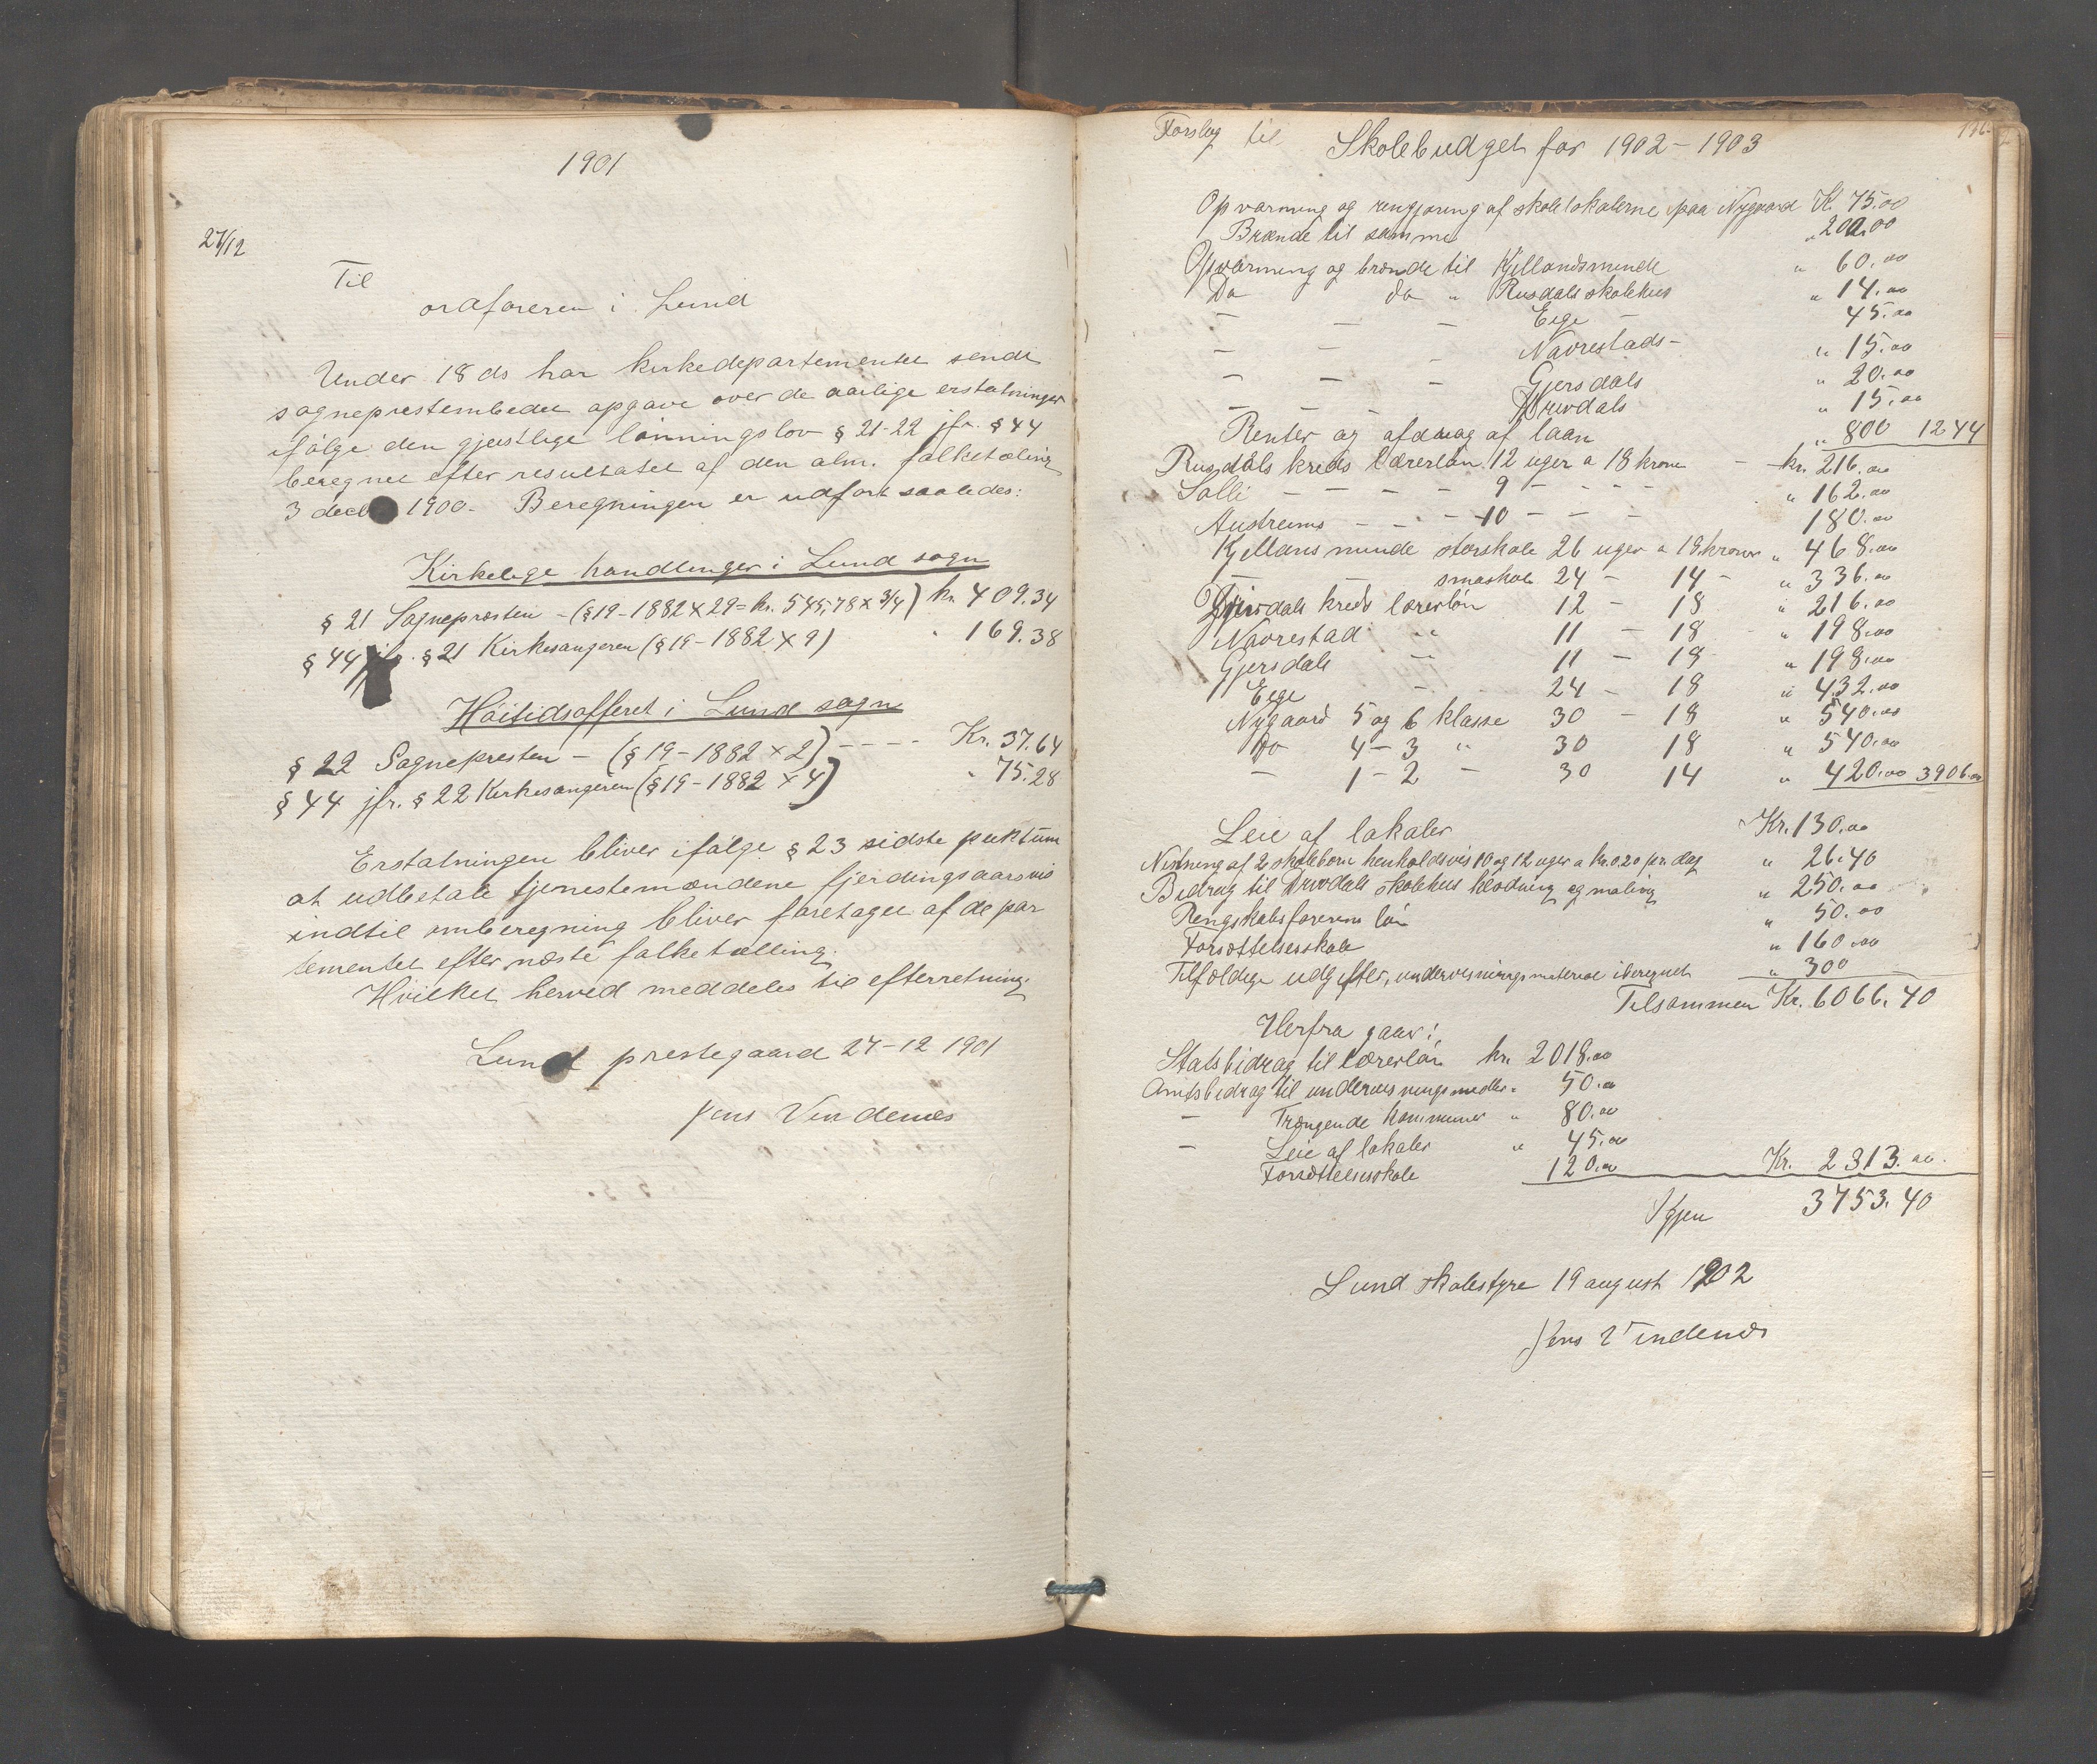 1901
27/12
Til
ordføreren i Lund
Under 18 ds har kirkedepartementet sendt
sogneprestembedet opgave over de aarlige erstatninger
ifølge den gjeistlige lønningslov § 21-22 jfr. § 44
beregnet efter resultatet af den alm. folketæling
3 decbr 1900. Beregningen er udført saaledes:
Kirkelige handlinger i Lund sogn
§ 21 Sognepræsten – (§ 19 – 1882 × 29 = kr. 545,78 × 3/4) kr. 409.34
§ 44 jfr. § 21 Kirkesangeren (§ 19 – 1882 × 9) " 169.38
Høitidsofferet i Lund sogn
§ 22 Sognepresten – (§ 19 – 1882 × 2) - - - - Kr. 37.64
§ 44 jfr. § 22 Kirkesangeren (§ 19 – 1882 × 4) " 75.28
Erstatningen bliver ifølge § 23 sidste puktum
at udbetale tjenestemændene fjerdingsaarsvis
indtil omberegning bliver foretaget af depar
tementet efter næste folketælling.
Hvilket herved meddeles til efterretning.
Lund prestegaard 27-12 1901
Jens Vindenes
Forslag til Skolebudget for 1902 – 1903
Opvarming og rengjøring af skolelokalerne paa Nygaard Kr. 75.00
Brænde til samme " 200.00
Opvarming og brænde til Kjellandsminde " 60.00
Do do " Rusdals skolehus " 14.00
– – – Eige – 45.00
– – – Navrestads – " 15.00
– – – Gjersdals " 20.00
– – – Drivdals " 15.00
Renter og afdrag af laan " 800 1244
Rusdals kreds lærerløn 12 uger a 18 kroner – kr. 216.00
Salli – – – – 9 – - - - " 162.00
Austrums – – – 10 – – – 180.00
Kjellansminde storskole 26 uger a 18 kroner " 468.00
– småskole 24 – 14 – " 336.00
Drivdals kreds lærerløn 12 – 18 " 216.00
Navrestad " 11 – 18 " 198.00
Gjersdals – 11 – 18 " 198.00
Eige - - 24 – 18 " 432.00
Nygaard 5 og 6 klasse 30 – 18 " 540.00
Do 4 – 3 " 30 18 " 540.00
– 1 – 2 – 30 14 " 420.00 3906.00
Leie af lokaler Kr. 130.00
Nistning af 2 skolebørn henholdsvis 10 og 12 uger a kr. 0.20 pr. dag " 26.40
Bidrag til Drivdals skolehus klædning og maling " 250.00
Rengskabsførerens løn " 50.00
Forsættelsesskole " 160.00
Tilfældige udgifter, undervisningsmateriel iberegnet " 300
Tilsammen Kr. 6066.40
Herfra gaar:
Statsbidrag til lærerløn kr. 2018.00
Amtsbidrag til undervisningsmidler " 50.00
– Trængende kommuner " 80.00
– Leie af lokaler " 45.00
Forsættelsesskole 120.00 Kr. 2313.00
Igjen 3753.40
Lund skolestyre 19 august 1902
Jens Vindenes